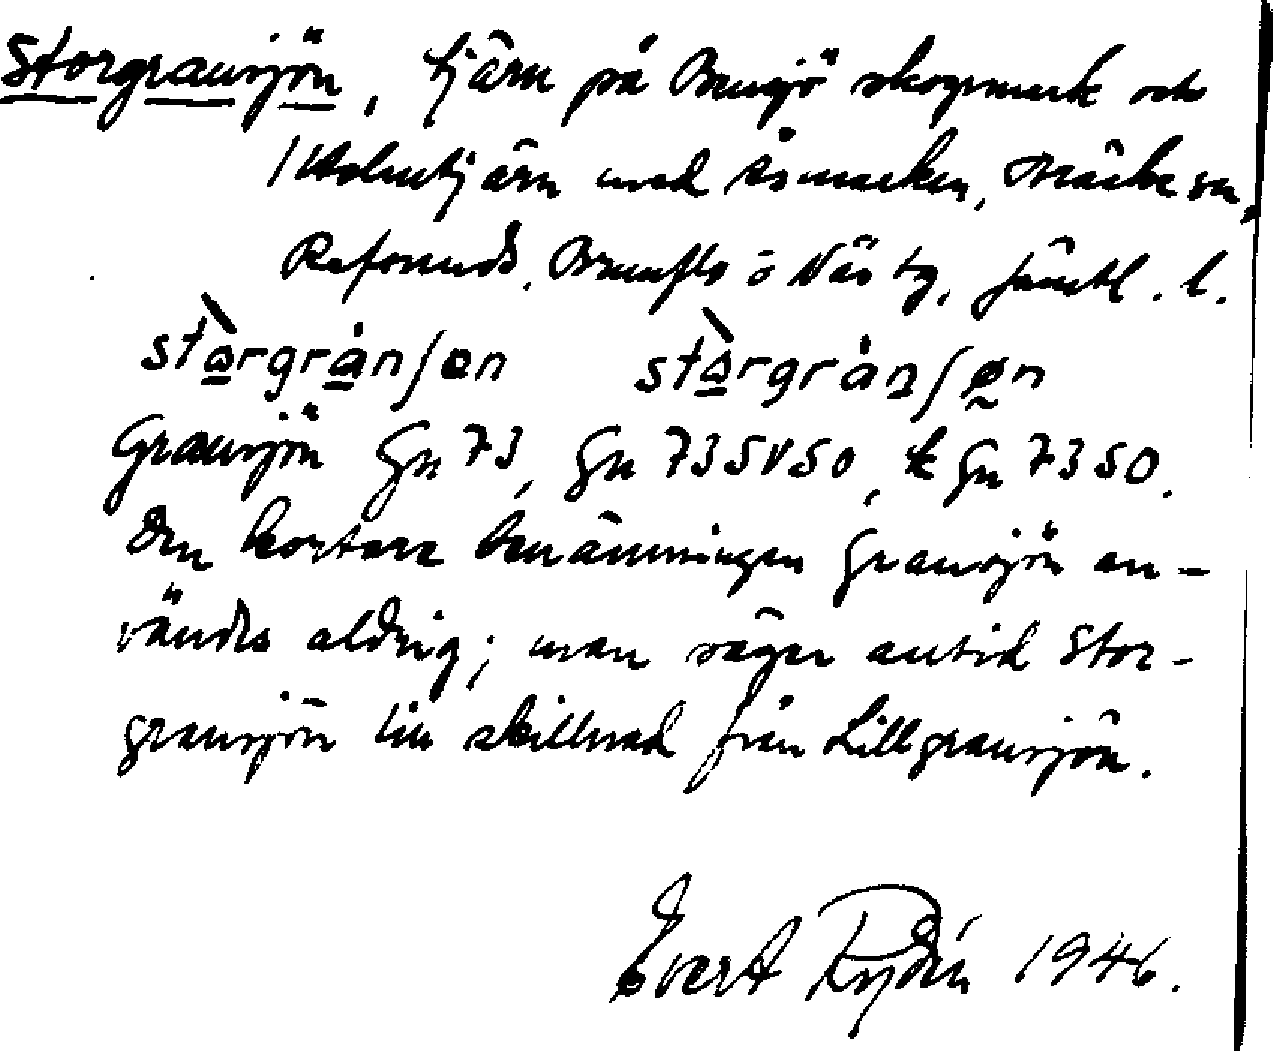 Storgransjön, tjärn på Bensjö skogsmark och
Holmtjärn med Åsmarken, Bräcke sn,
Refsunds, Brunflo o Näs tg, Jämtl. l.
stɑ̀rgrånʃen stɑ̀rgrånʃøn
Gransjön Gn 73, Gn 73SVSO, k Gn 73SO.
Den kortare benämningen Gransjön an-
vändes aldrig; man säger alltid Stor-
gransjön till skillnad från Lillgransjön.
Evert Rydén 1946.